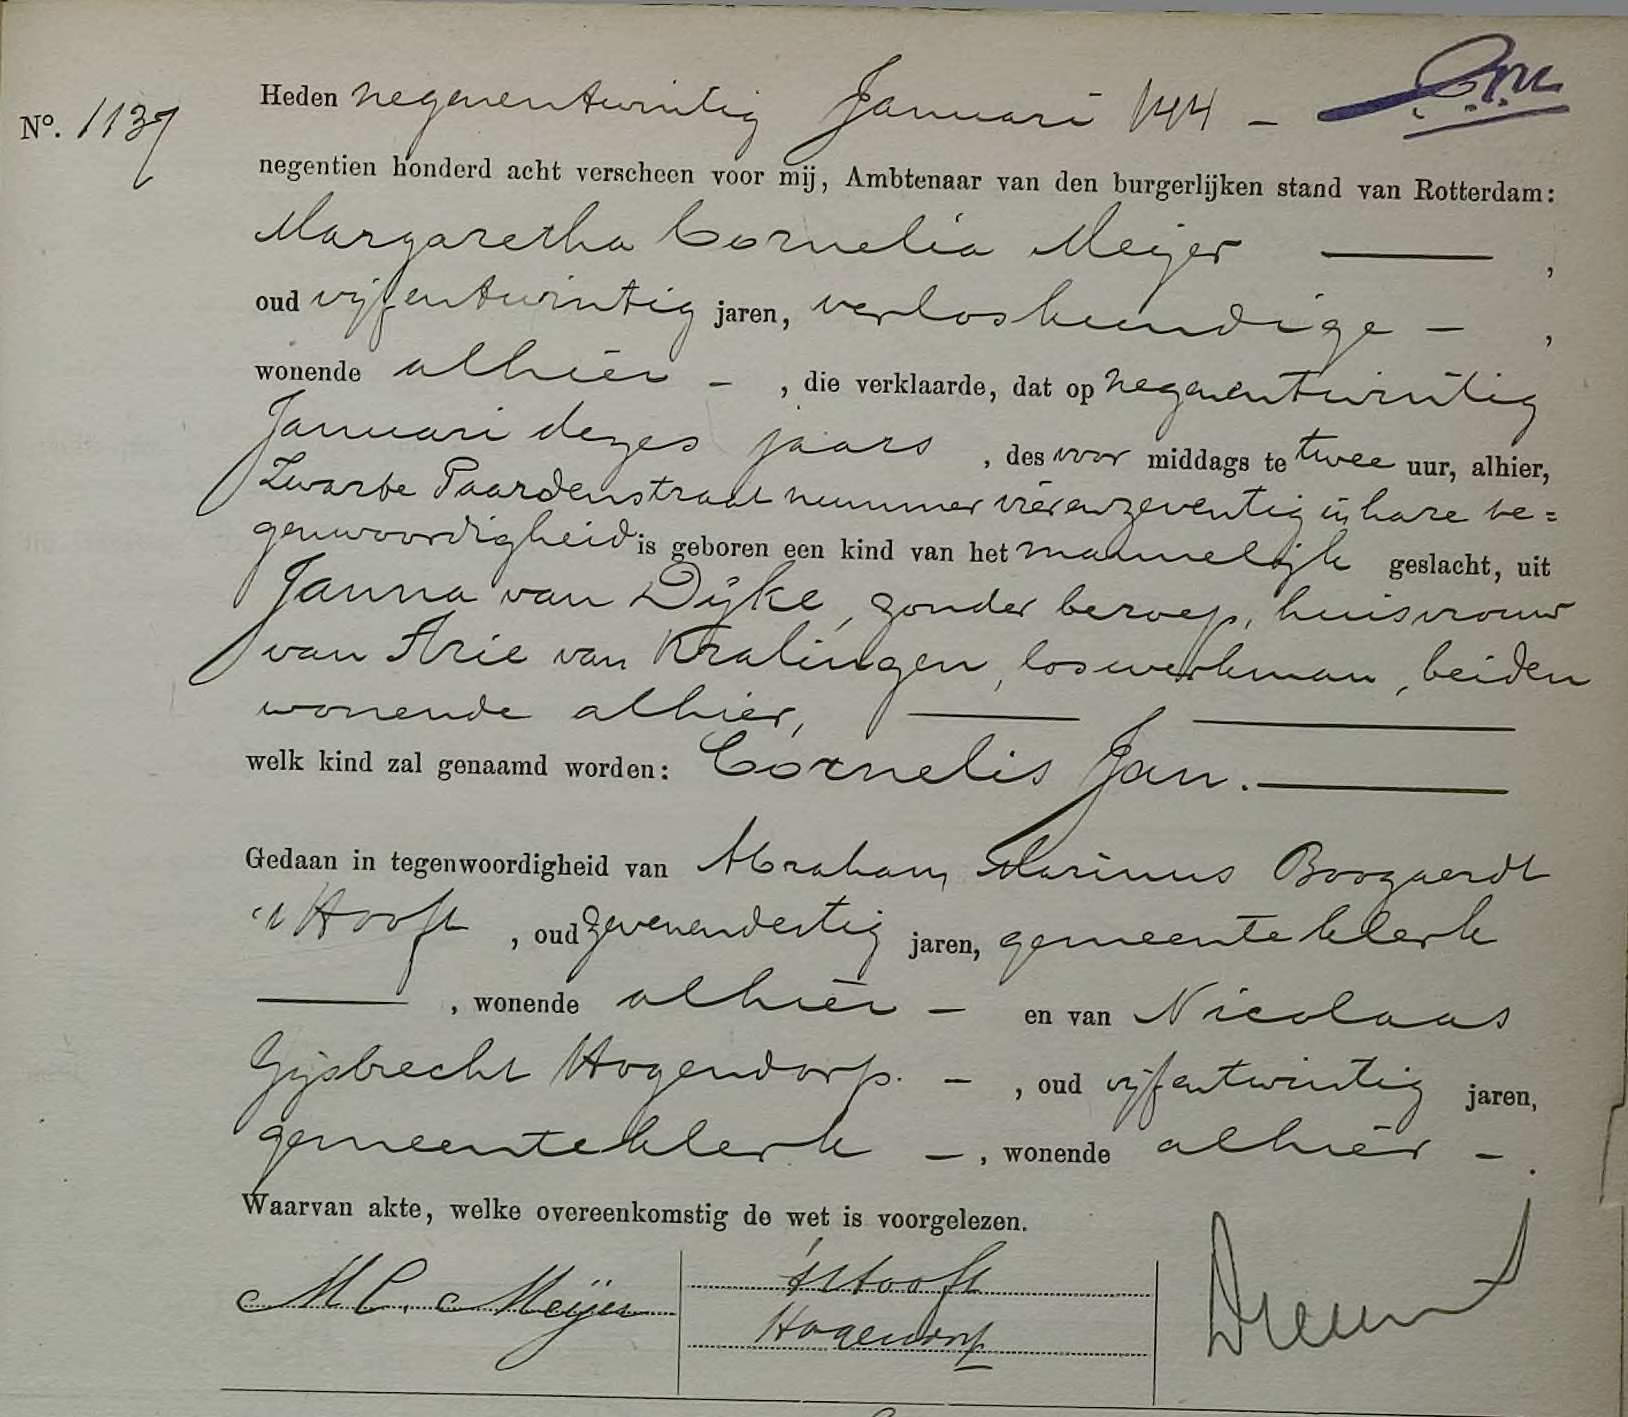 Nº. 1137
Heden negenentwintig Januari
negentien honderd acht verscheen voor mij, Ambtenaar van den burgerlijken stand van Rotterdam:
Margaretha Cornelia Meijer ,
oud vijfentwintig jaren, verloskundige - ,
wonende alhier - , die verklaarde, dat op negenentwintig
Januari dezes jaars , des voor middags te twee uur, alhier,
Zwarte Paardenstraat nummer vierenzeventig in hare te=
genwoordigheid is geboren een kind van het mannelijk geslacht, uit
Janna van Dijke, zonder beroep, huisvrouw
van Arie van Kralingen, loswerkman, beiden
wonende alhier,
welk kind zal genaamd worden: Cornelis Jan.
Gedaan in tegenwoordigheid van Abraham Marinus Boogaerdt
't Hooft , oud zevenendertig jaren, gemeenteklerk
, wonende alhier - en van Nicolaas
Gijsbrecht Hogendorp. - , oud vijfentwintig jaren,
gemeenteklerk - , wonende alhier - .
Waarvan akte, welke overeenkomstig de wet is voorgelezen.
M C. Meijer
't Hooft
Hogendorp